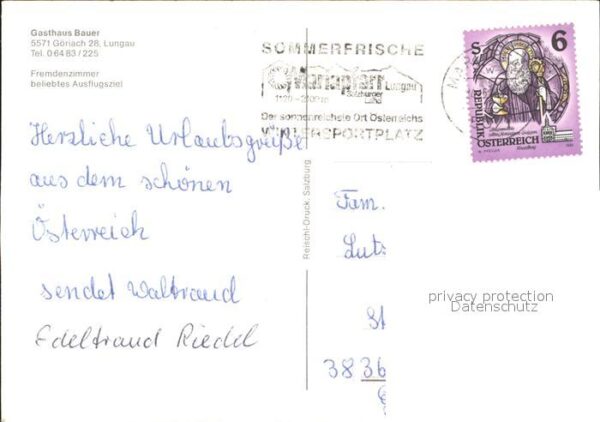 Gasthaus Bauer
5571 Göriach 28, Lungau
Tel. 0 64 83 / 225
Fremdenzimmer
beliebtes Ausflugsziel
SOMMERFRISCHE
Mariapfarr Lungau
Salzburger
1120 -
Der sonnenreichste Ort Österreichs
WINTERSPORTPLATZ
S 6
REPUBLIK
ÖSTERREICH
Herzliche Urlaubsgrüße
aus dem schönen
Österreich
sendet Waltraud
Edeltraud Riedel
Reischl-Druck, Salzburg
Fam.
Lutz
St
38 36
privacy protection
Datenschutz